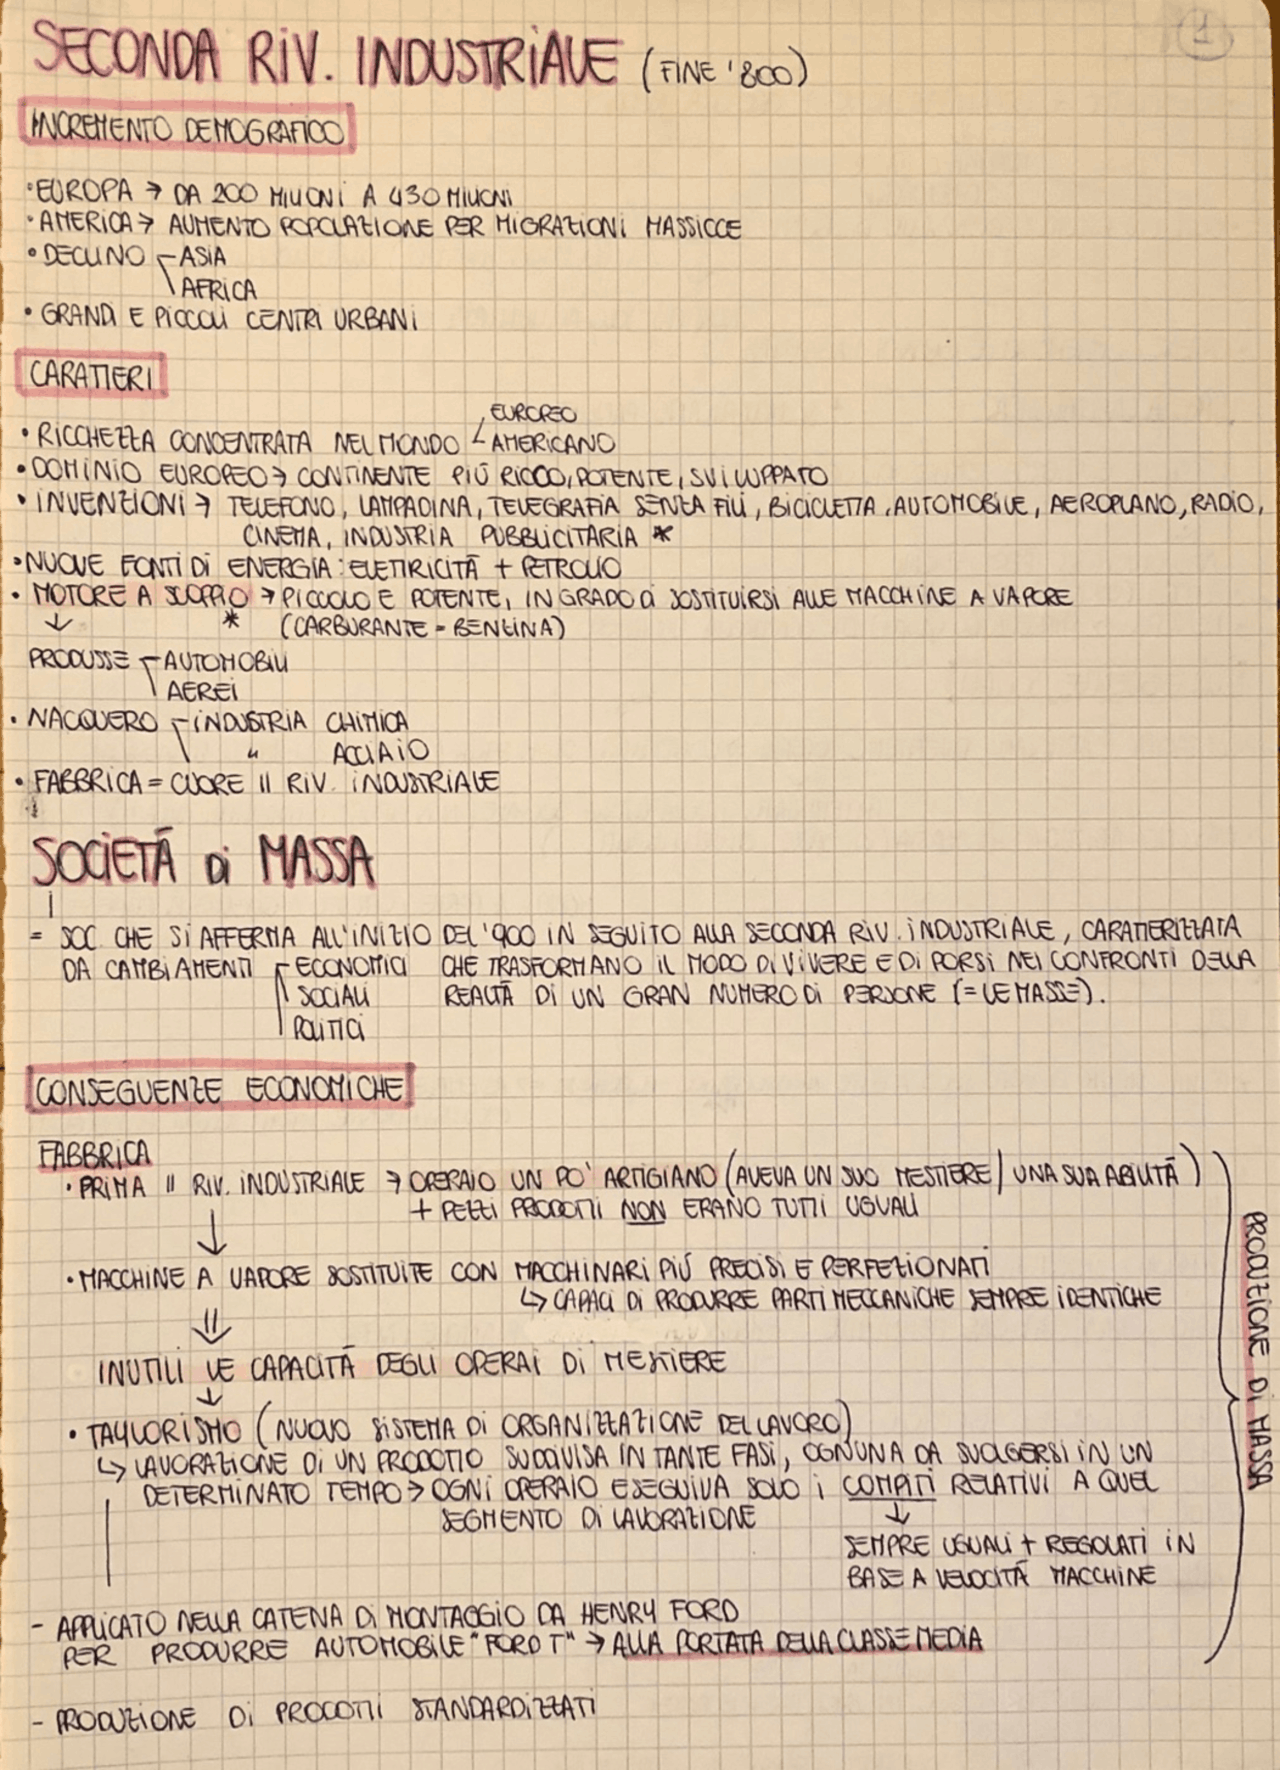 1
SECONDA RIV. INDUSTRIALE (FINE '800)
INCREMENTO DEMOGRAFICO
• EUROPA → DA 200 MILIONI A 430 MILIONI
• AMERICA → AUMENTO POPOLAZIONE PER MIGRAZIONI MASSICCE
• DECLINO ASIA
AFRICA
• GRANDI E PICCOLI CENTRI URBANI
CARATTERI
EUROPEO
• RICCHEZZA CONCENTRATA NEL MONDO AMERICANO
• DOMINIO EUROPEO → CONTINENTE PIÙ RICCO, POTENTE, SVILUPPATO
• INVENZIONI → TELEFONO, LAMPADINA, TELEGRAFIA SENZA FILI, BICICLETTA, AUTOMOBILE, AEROPLANO, RADIO,
CINEMA, INDUSTRIA PUBBLICITARIA *
• NUOVE FONTI DI ENERGIA: ELETTRICITÀ + PETROLIO
• MOTORE A SCOPPIO → PICCOLO E POTENTE, IN GRADO DI SOSTITUIRSI ALLE MACCHINE A VAPORE
↓ * (CARBURANTE = BENZINA)
PRODUSSE AUTOMOBILI
AEREI
• NACQUERO INDUSTRIA CHIMICA
" ACCIAIO
• FABBRICA = CUORE II RIV. INDUSTRIALE
SOCIETÀ DI MASSA
= SOC. CHE SI AFFERMA ALL'INIZIO DEL '900 IN SEGUITO ALLA SECONDA RIV. INDUSTRIALE, CARATTERIZZATA
DA CAMBIAMENTI ECONOMICI CHE TRASFORMANO IL MODO DI VIVERE E DI PORSI NEI CONFRONTI DELLA
SOCIALI REALTÀ DI UN GRAN NUMERO DI PERSONE (= LE MASSE).
POLITICI
CONSEGUENZE ECONOMICHE
FABBRICA
• PRIMA II RIV. INDUSTRIALE → OPERAIO UN PO' ARTIGIANO (AVEVA UN SUO MESTIERE / UNA SUA ABILITÀ)
+ PEZZI PRODOTTI NON ERANO TUTTI UGUALI
↓
• MACCHINE A VAPORE SOSTITUITE CON MACCHINARI PIÙ PRECISI E PERFEZIONATI
↳ CAPACI DI PRODURRE PARTI MECCANICHE SEMPRE IDENTICHE
⇓
INUTILI LE CAPACITÀ DEGLI OPERAI DI MESTIERE
↓
• TAYLORISMO (NUOVO SISTEMA DI ORGANIZZAZIONE DEL LAVORO)
↳ LAVORAZIONE DI UN PRODOTTO SUDDIVISA IN TANTE FASI, OGNUNA DA SVOLGERSI IN UN
DETERMINATO TEMPO → OGNI OPERAIO ESEGUIVA SOLO I COMPITI RELATIVI A QUEL
SEGMENTO DI LAVORAZIONE ↓
SEMPRE UGUALI + REGOLATI IN
BASE A VELOCITÀ MACCHINE
PRODUZIONE DI MASSA
- APPLICATO NELLA CATENA DI MONTAGGIO DA HENRY FORD
PER PRODURRE AUTOMOBILE "FORD T" → ALLA PORTATA DELLA CLASSE MEDIA
- PRODUZIONE DI PRODOTTI STANDARDIZZATI